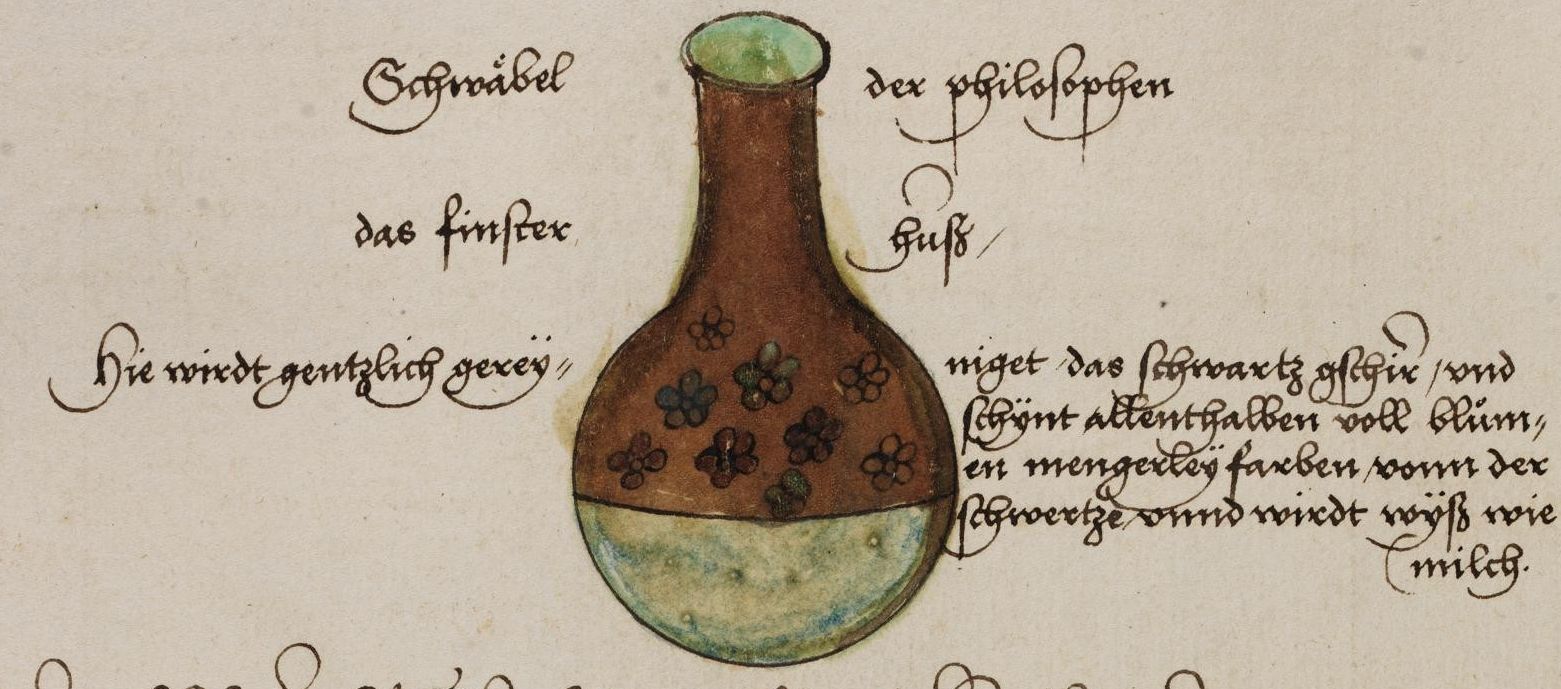 Schwåbel der philosophen
das finster huß /
Hie wirdt gentzlich gereÿ= niget das schwartz gschir / vnd
schÿnt allenthalben voll blům=
en mengerleÿ farben vonn der
schwertze vnnd wirdt wÿß wie
milch.